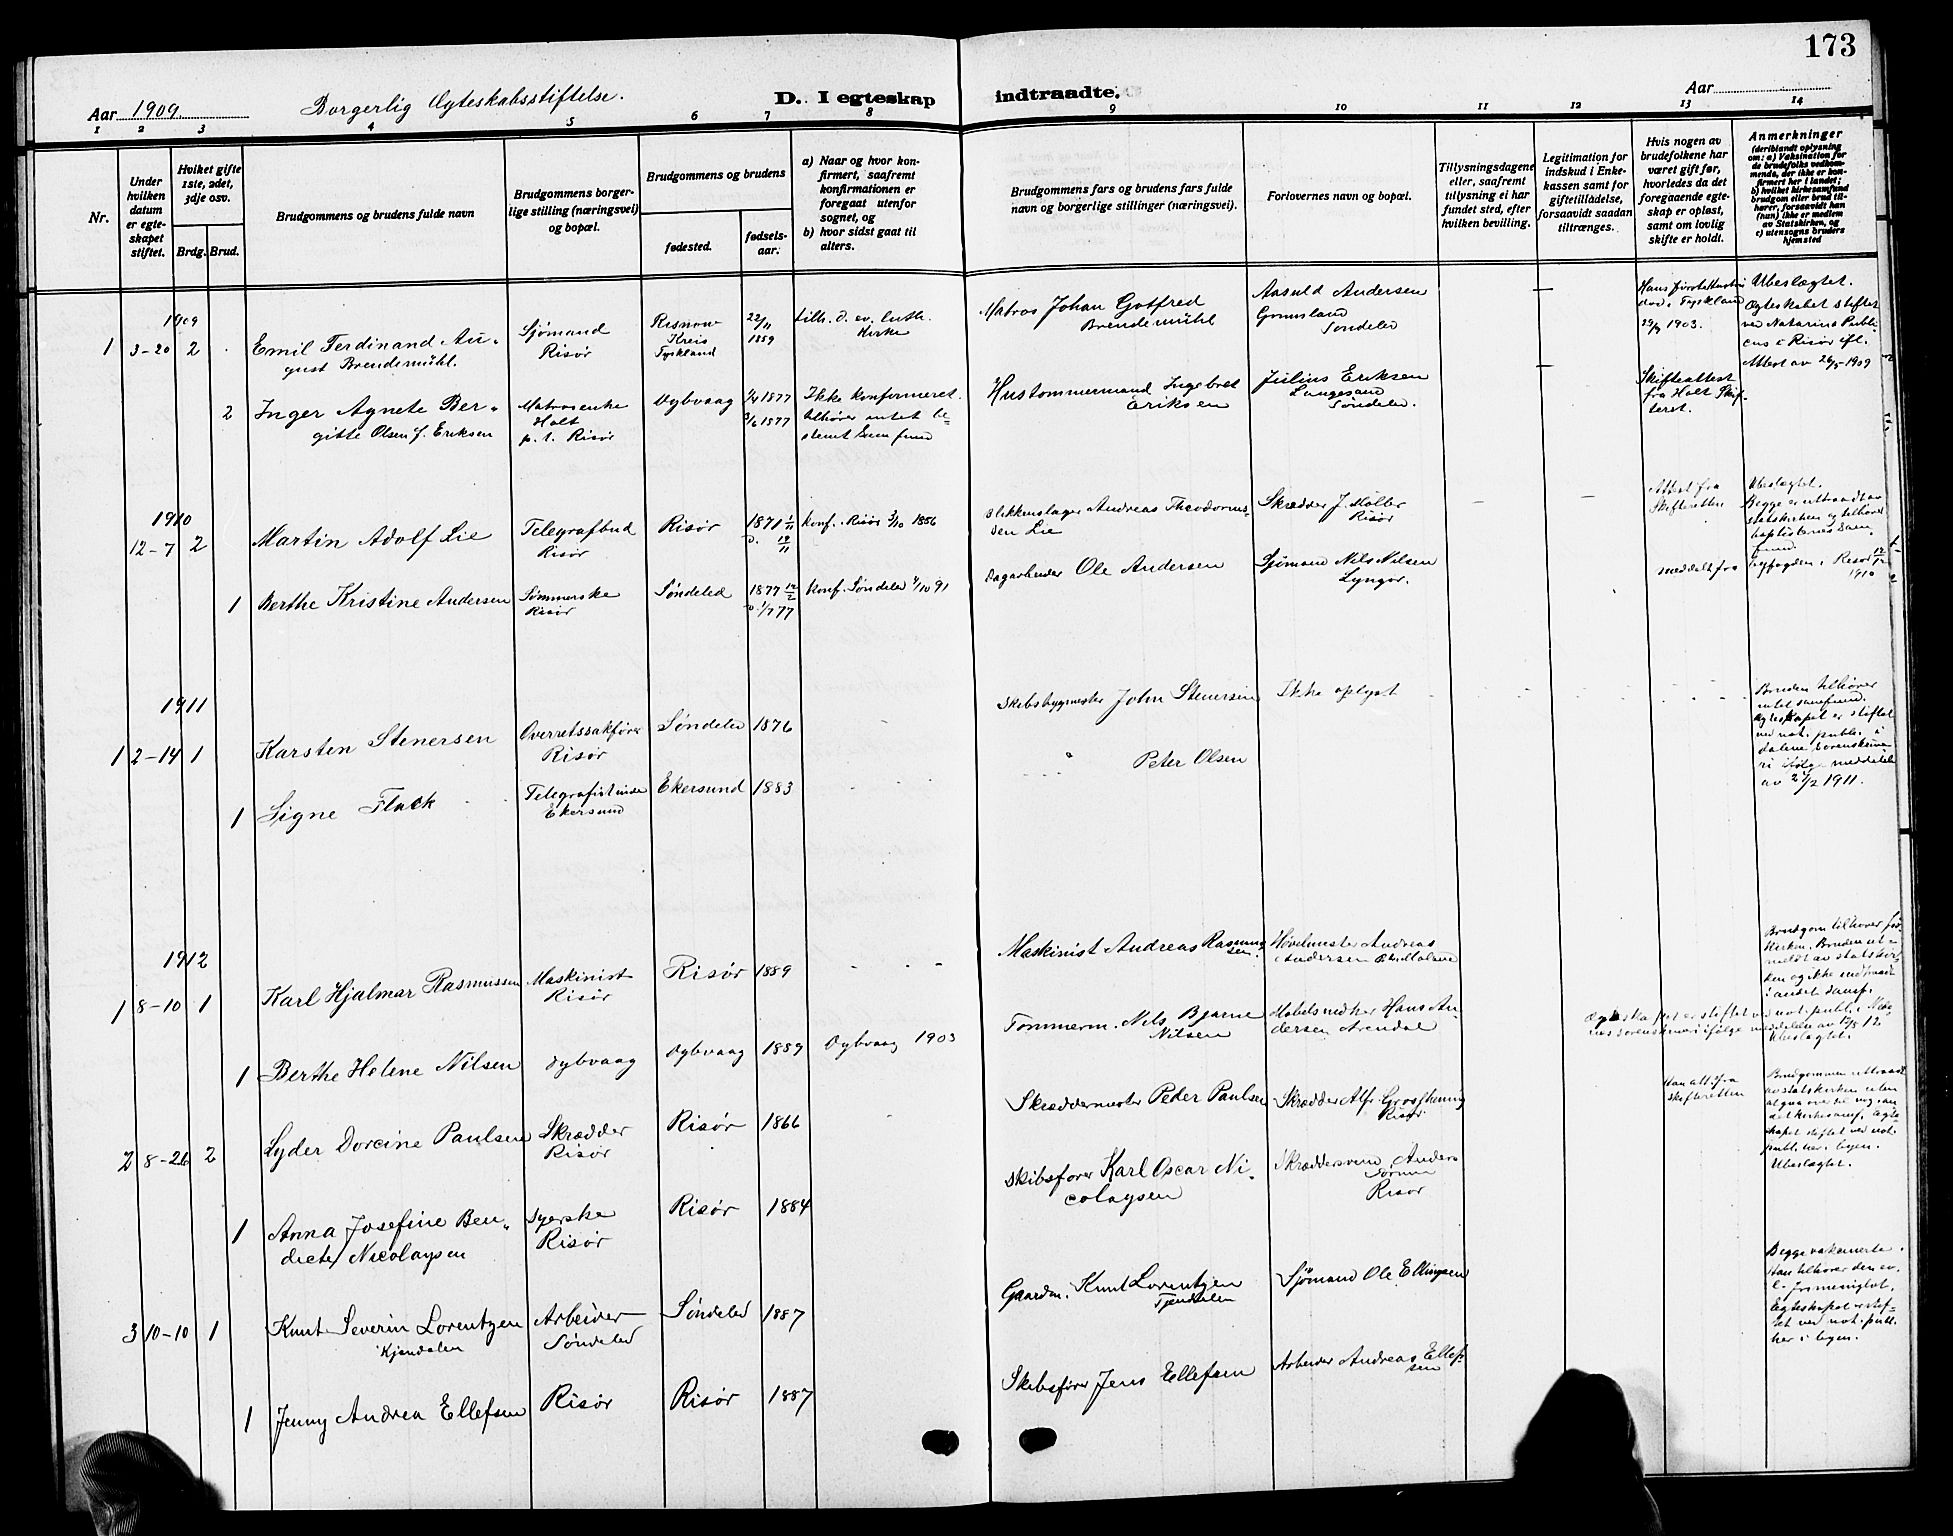 173
Aar 1909
Borgerlig Ægteskabsstiftelse.
D. I egteskap indtraadte.
Aar
1 2 3 4 5 6 7 8 9 10 11 12 13 14
Nr.
Under hvilken datum er egteskapet stiftet.
Hvilket gifte 1ste, 2det, 3dje osv.
Brdg. Brud.
Brudgommens og brudens fulde navn
Brudgommens borgerlige stilling (næringsvei) og bopæl.
Brudgommens og brudens
fødested.
fødselsaar.
a) Naar og hvor konfirmert, saafremt konfirmationen er foregaat utenfor sognet, og
b) hvor sidst gaat til alters.
Brudgommens fars og brudens fars fulde navn og borgerlige stillinger (næringsvei).
Forlovernes navn og bopæl.
Tillysningsdagene eller, saafremt tillysning ei har fundet sted, efter hvilken bevilling.
Legitimation for indskud i Enkekassen samt for giftetilladelse, forsaavidt saadan tiltrænges.
Hvis nogen av brudefolkene har været gift før, hvorledes da det foregaaende egteskap er opløst, samt om lovlig skifte er holdt.
Anmerkninger
(deriblandt oplysning om: a) Vaksination for de brudefolks vedkommende, der ikke er konfirmert her i landet;
b) hvilket kirkesamfund brudgom eller brud tilhører, forsaavidt han (hun) ikke er medlem av Statskirken, og
c) utensogns bruders hjemsted
1909
1 3-20 2 Emil Ferdinand August Brendemühl. Sjømand Risør Kreis Tyskland 22/11 1859 tilh. d. ev. luth. Kirke
Matros Johan Gotfred Brendemühl
Aasuld Andersen Søndeled
Tyskland 29/9 1903.
Ubeslægtet. Ægteskabet stiftet ved Notarius Publicus i Risør efl. Attest av 26/5-1909
2 Inger Agnete Bergitte Olsen f. Eriksen Matrosenke Holt p.t. Risør Dybvaag 1/4 1877 3/6 1877 Ikke konfirmeret. tilhører intet bestemt Samfund
Hustømmermand Ingebret Eriksen
Julius Eriksen Søndeled.
Skifteattest fra Holt Skifteret.
1910
12-7 2 Martin Adolf Lie Telegrafbud Risør Risør 1871 konf. Risør 3/10 1886
Blikkenslager Andreas Lie
Skrædder J. Møller Risør
Attest fra Skifteretten
Ubeslægtet. Begge er uttraadt av statskirken og tilhører baptisternes Samfund.
1 Berthe Kristine Andersen Risør Søndeled 1877 12/2 konf. Søndeled 4/10 91
Dagarbeider Ole Andersen
Sjømand Nils Nilsen Lyngør.
meddelt fra byfogden i Risør 1910
1911
1 2-14 1 Karsten Stenersen Overretssakfører Risør Søndeled 1876
Skibsbygmester John Stenersen
Ikke oplyst
Bruden tilhører intet samfund. Ægteskapet er stiftet ved not. publ. i Dalene sorenskriveri ifølge meddelelse av 24/2 1911.
1 Signe Flack Telegrafistinde Ekersund Ekersund 1883
" Peter Olsen
1912
1 8-10 1 Karl Hjalmar Rasmussen Maskinist Risør Risør 1889
Maskinist Andreas Rasmussen.
Høvelmester Andreas Andersen
Brudgom tilhører Kirken. Bruden utmeldt av statskirken og ikke indtraadt i andet samf.
1 Berthe Helene Nilsen Dybvaag Dybvaag 1889 Dybvaag 1903
Tømmerm. Nils Bjarne Nilsen
Møbelsnedker Hans Andersen Arendal
Ægteskapet er stiftet ved not. publ. i Nedenes sorenskriveri ifølge meddelelse av 12/8 12. Ubeslægtet.
2 8-26 2 Lyder Dorcine Paulsen Skrædder Risør Risør 1866
Skræddermester Peder Paulsen
Skrædder Alfr. Risør
Han att. fra skifteretten
Brudgommen uttraadt av statskirken uten at gaa over til nogen det kirkesamf. Ægteskapet stiftet ved not. publ. her i byen. Ubeslægtet.
1 Anna Josefine Bendicte Nicolaysen Syerske Risør Risør 1884
Skibsfører Karl Oscar Nicolaysen
Skræddersvend Anders Risør
3 10-10 1 Knut Severin Lorentzen Kjendalen Arbeider Søndeled Søndeled 1887
Gaardm. Knut Lorentzen
Sjømand Ole Ellingsen
Begge vakcinerte. Han tilhører den ev. l. frimenighet. Egteskapet stiftet ved not. publ. her i byen.
1 Jenny Andrea Ellefsen Risør Risør 1887
Skibsfører Jens Ellefsen
Arbeider Andreas Ellefsen